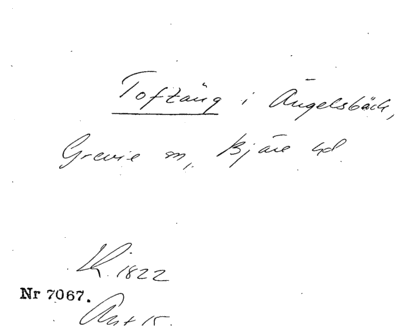 Toftäng i Ängelsbäck,
Grevie sn, Bjäre hd.
1822
Nr 7067.